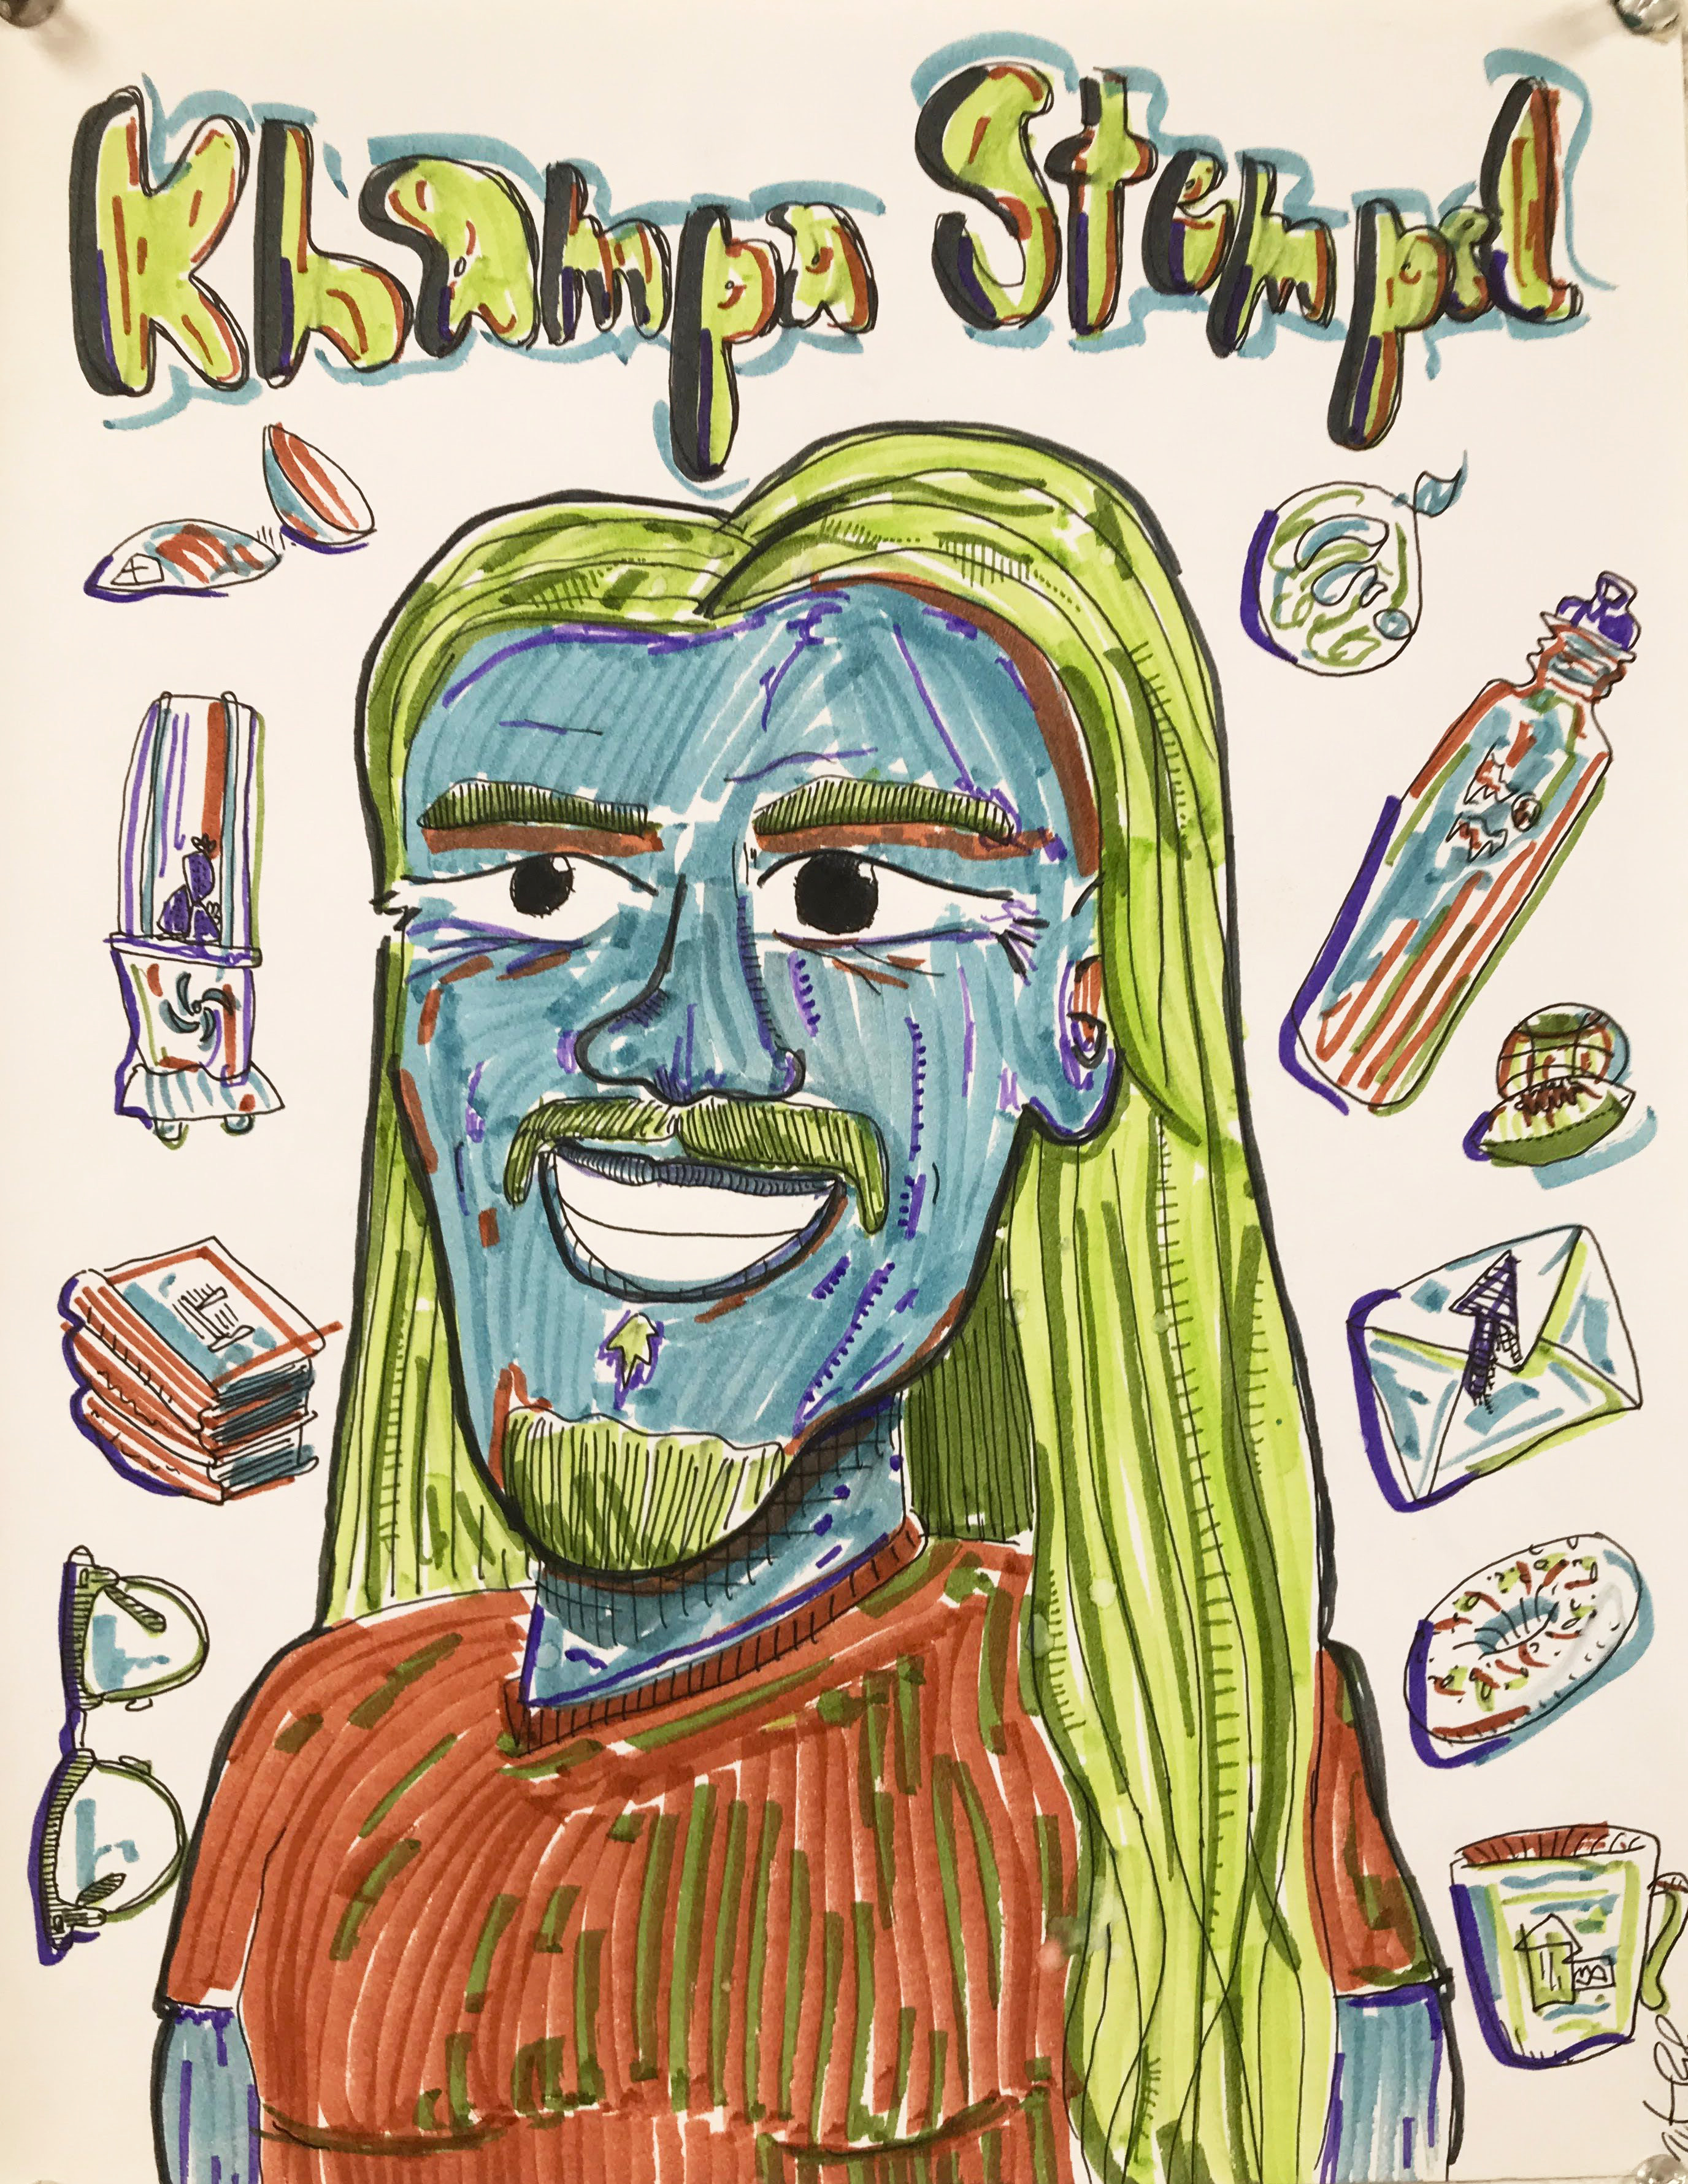 Khampa Stempel